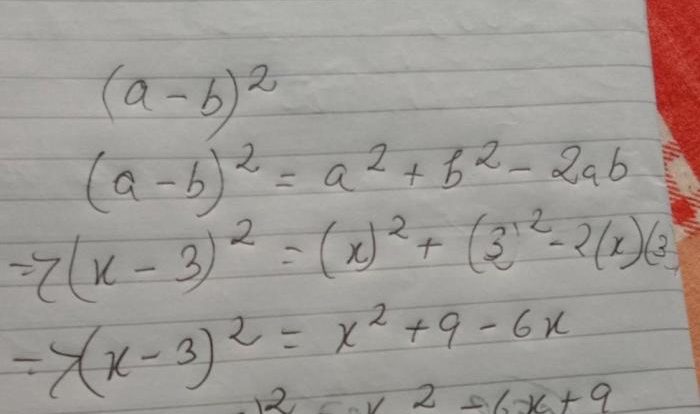 (a - b)²
(a - b)² = a² + b² - 2ab
⇒ (x - 3)² = (x)² + (3)² - 2(x)(3
⇒ (x - 3)² = x² + 9 - 6x
)² = x² - 6x + 9